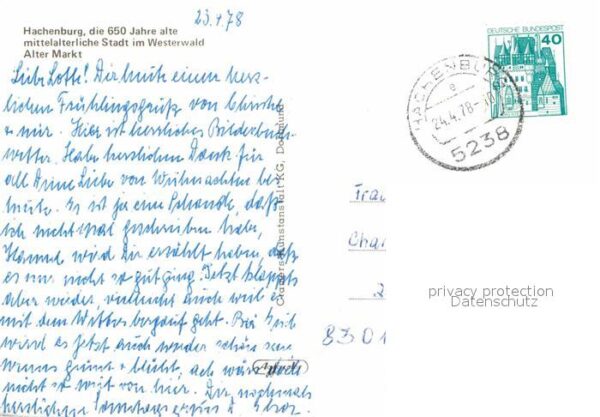 23.4.78
Hachenburg, die 650 Jahre alte
mittelalterliche Stadt im Westerwald
Alter Markt
Liebe Lotte! Dir heute einen herz-
lichen Frühlingsgruß von
+ mir. Hier ist herrliches Bilderbuch-
wetter. Habe herzlichen Dank für
all Deine Liebe von Weihnachten bis
heute. Es ist ja eine Schande, daß
ich nicht mal geschrieben habe,
wird Dir erzählt haben, daß
es mir nicht so gut ging. Jetzt klappts
aber wieder, vielleicht auch weil es
mit dem Wetter bergauf geht. Bei Euch
wird es jetzt auch wieder schön sein
wenns grünt + blüht, ach wärs doch
nicht so weit von hier. Dir nochmals
herzlichen Sonntagsgruß
Cramers Kunstanstalt KG, Dortmund
DEUTSCHE BUNDESPOST
40
HACHENBURG
e
24.4.78
5238
Frau
Char
2
8301
privacy protection
Datenschutz